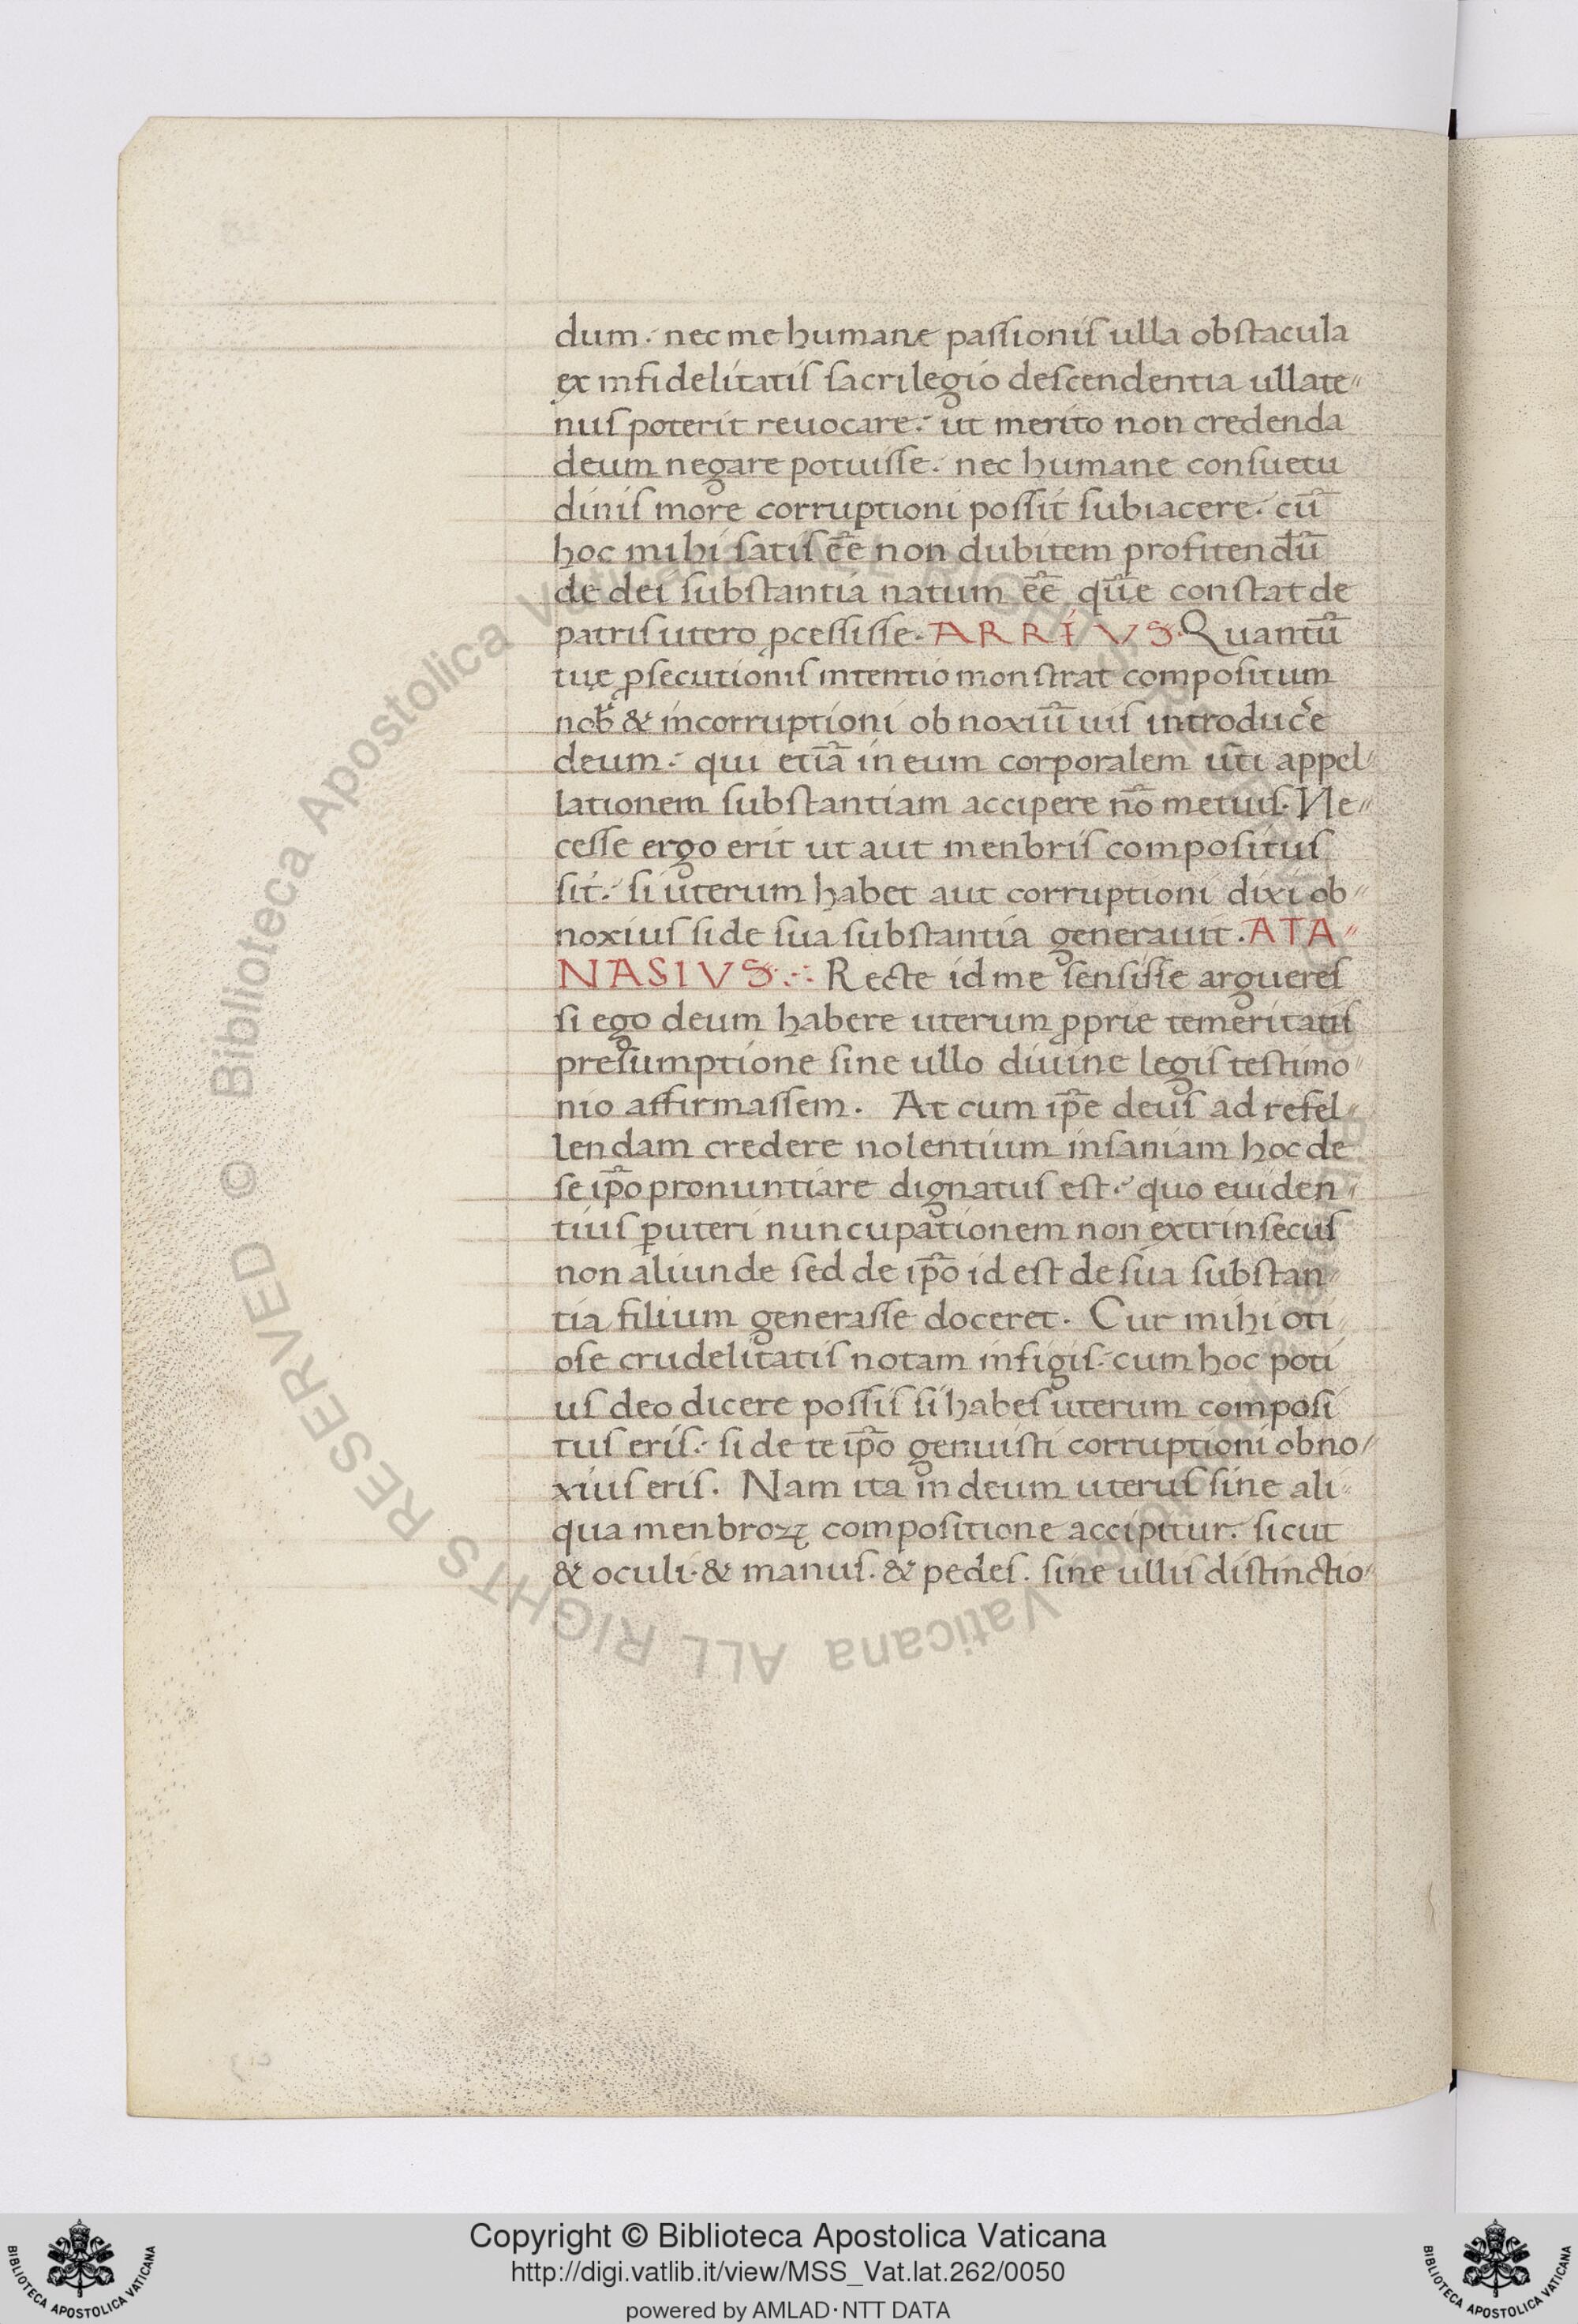 dum. nec me humane passionis ulla obstacula
ex infidelitatis sacrilegio descendentia ullate-
nus poterit reuocare. ut merito non credenda
deum negare potuisse. nec humane consuetu
dinis more corruptioni possit subiacere. cū
hoc mihi satis eē non dubitem profitendū
de dei substantia natum eē quē constat de
patris utero ꝓcessisse. ARRIVS. Quantū
tuę ꝑsecutionis intentio monstrat compositum
nob̄ & incorruptioni obnoxiū uis introduc̄e
deum. qui etiā in eum corporalem ut̄i appel-
lationem substantiam accipere nō metuis. Ne-
cesse ergo erit ut aut menbris compositus
sit. si uterum habet aut corruptioni dixi ob-
noxius si de sua substantia generauit. ATA-
NASIVS. Recte id me sensisse argueres
si ego deum habere uterum ꝓprie temeritatis
presumptione sine ullo diuine legis testimo-
nio affirmassem. At cum ip̄e deus ad refel-
lendam credere nolentium insaniam hoc de
se ip̄o pronuntiare dignatus est. quo euiden-
tius ꝑ uteri nuncupationem non extrinsecus
non aliunde sed de ip̄o id est de sua substan-
tia filium generasse doceret. Cur mihi oti-
ose crudelitatis notam infigis. cum hoc poti
us deo dicere possis si habes uterum composi
tus eris. si de te ip̄o genuisti corruptioni obno-
xius eris. Nam ita in deum uterus sine ali-
qua menbroꝝ compositione accipitur. sicut
& oculi. & manus. & pedes. sine ullis distinctio-
© Biblioteca Apostolica Vaticana ALL RIGHTS RESERVED
Copyright © Biblioteca Apostolica Vaticana
http://digi.vatlib.it/view/MSS_Vat.lat.262/0050
powered by AMLAD·NTT DATA
BIBLIOTECA APOSTOLICA VATICANA
BIBLIOTECA APOSTOLICA VATICANA